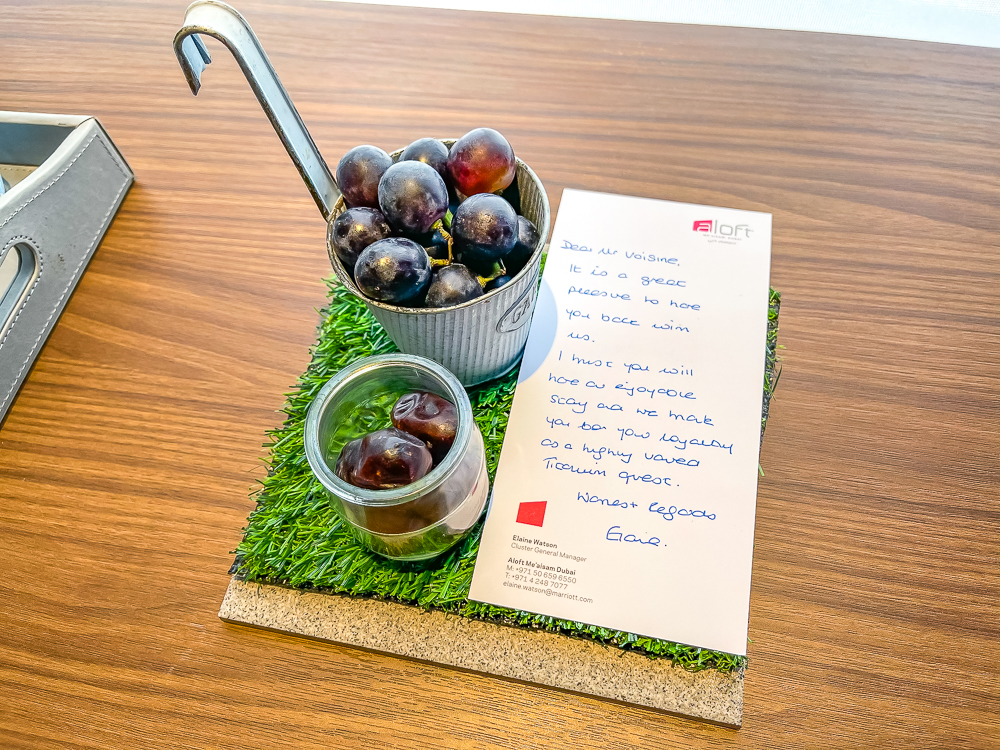 aloft
Dear Mr Voisine,
It is a great
pleasure to have
you back with
us.
I trust you will
have an enjoyable
stay and we thank
you for your loyalty
as a highly valued
Titanium guest.
Warmest Regards
Elaine.
Elaine Watson
Cluster General Manager
Aloft Me'aisam Dubai
M: +971 50 659 6550
T: +971 4 248 7077
elaine.watson@marriott.com